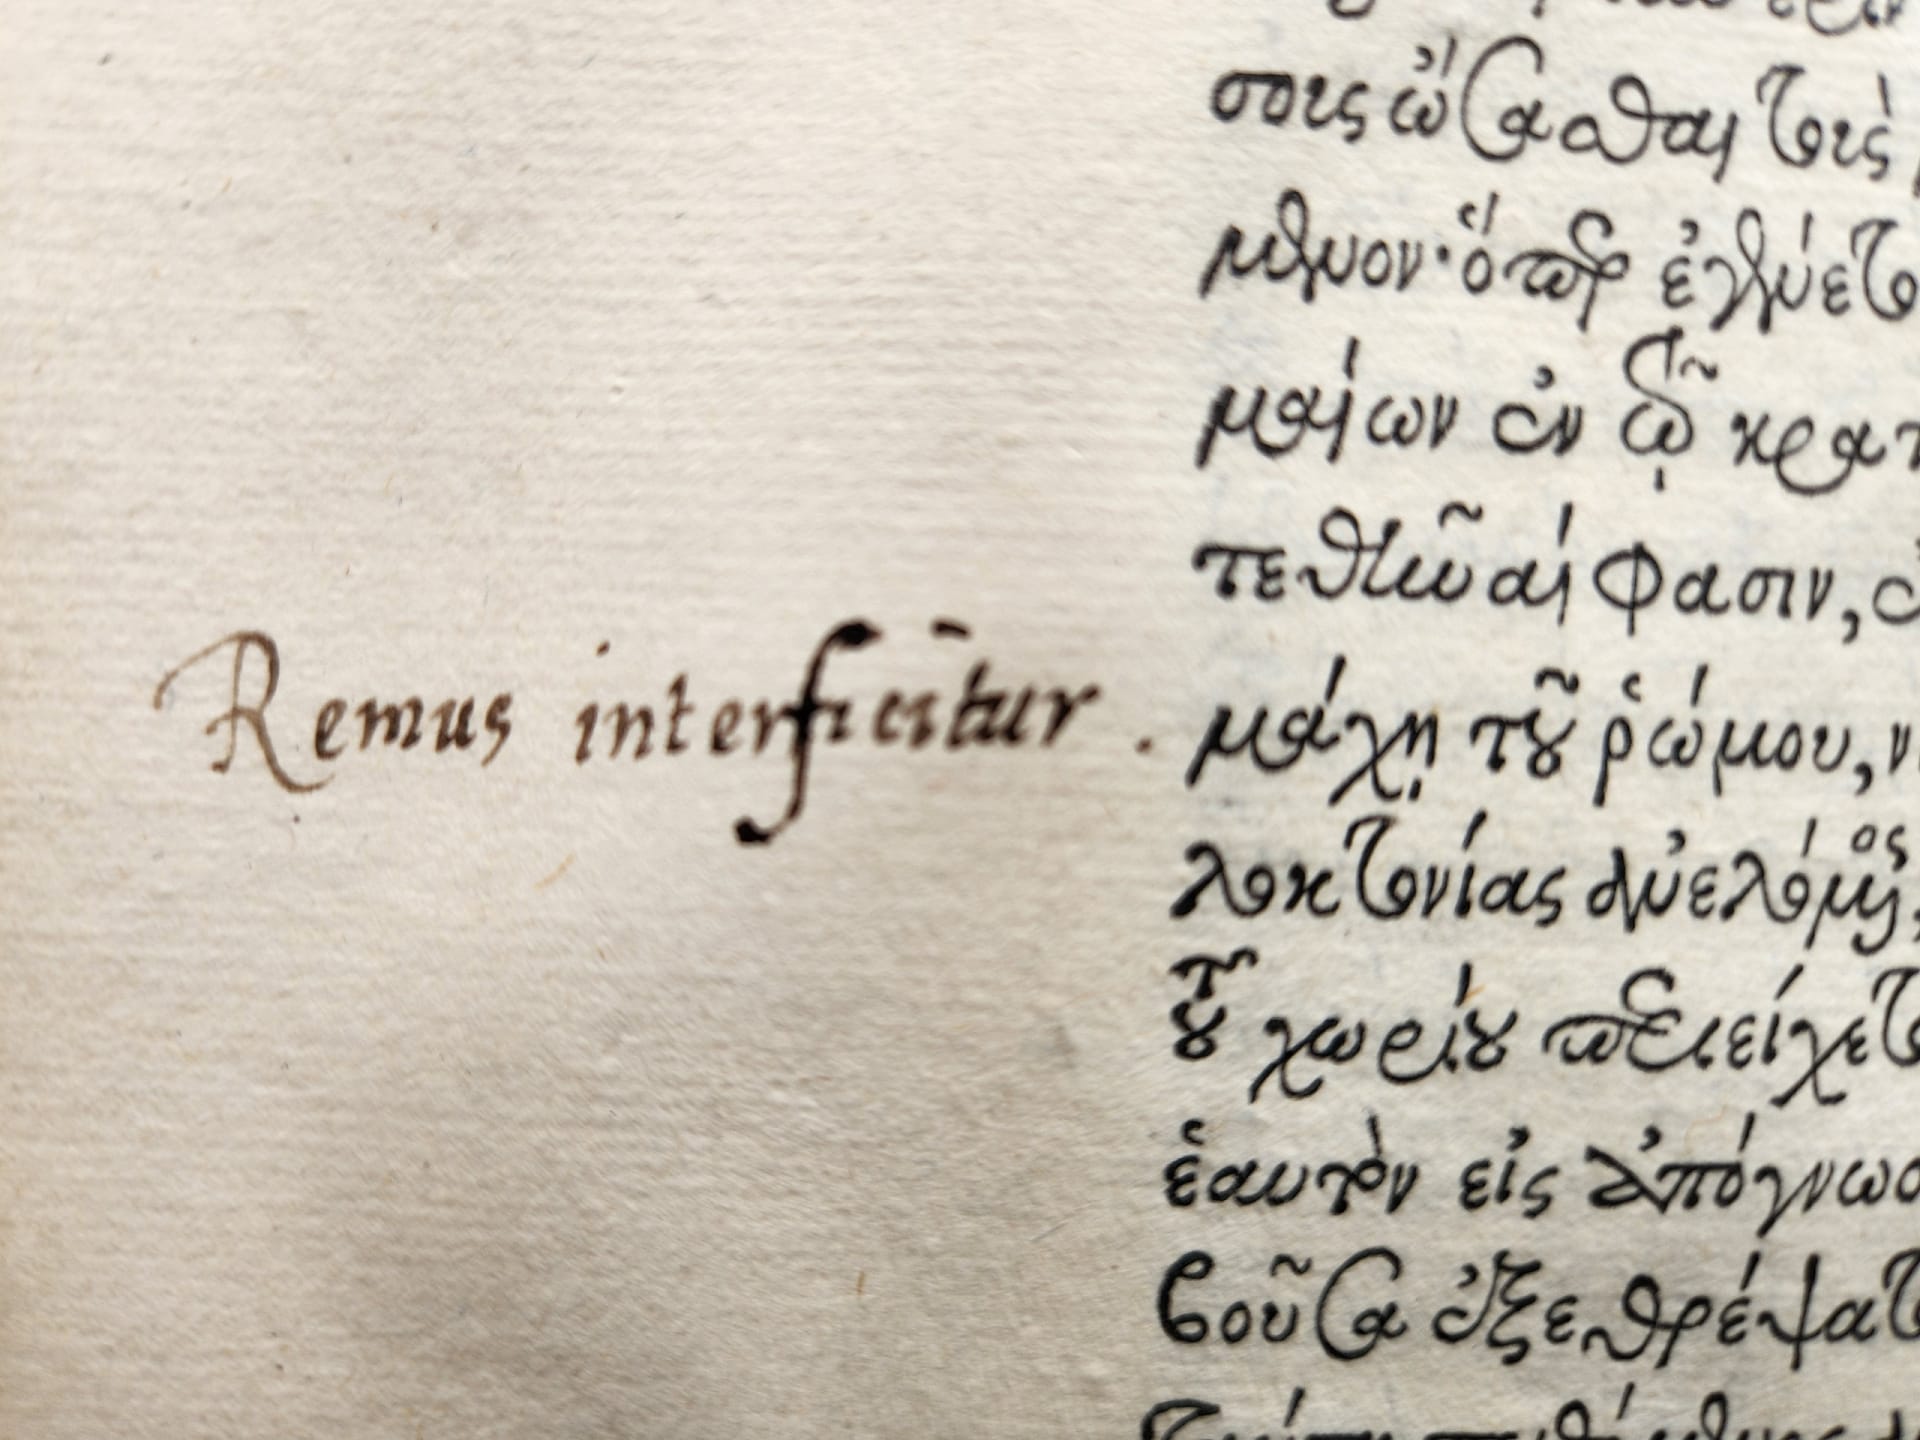 σους ὤσασθαι τοὺς
μενον· ὅπερ ἐγένετο
μαίων ἐν τῷ κρατ
τεθῆναί φασιν,
Remus interficitur.
μάχῃ τοῦ ῥώμου, ν
λοκτονίας ἀνελόμενος,
τοῦ χωρίου περιείχετο
ἑαυτὸν εἰς ἀπόγνωσ
βοῦσα ἐξεθρέψατο